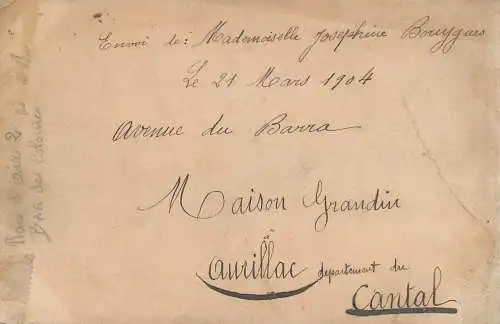 Envoi de: Mademoiselle Joséphine Bouygues
Le 21 Mars 1904
Avenue du Barra
Maison Grandin
à
Aurillac departement du
Cantal